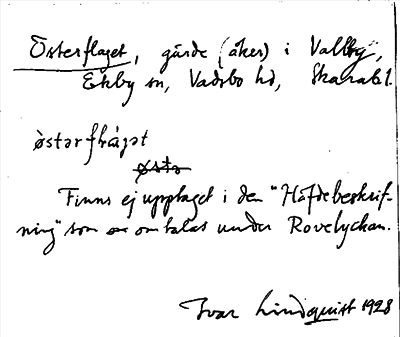 Österflaget, gärde (åker) i Vallby,
Ekby sn, Vadsbo hd, Skarab.l.
östərflagət
Finns ej upptaget i den "Häfdebeskrif-
ning" som omtalas under Rovelyckan.
Ivar Lindquist 1928